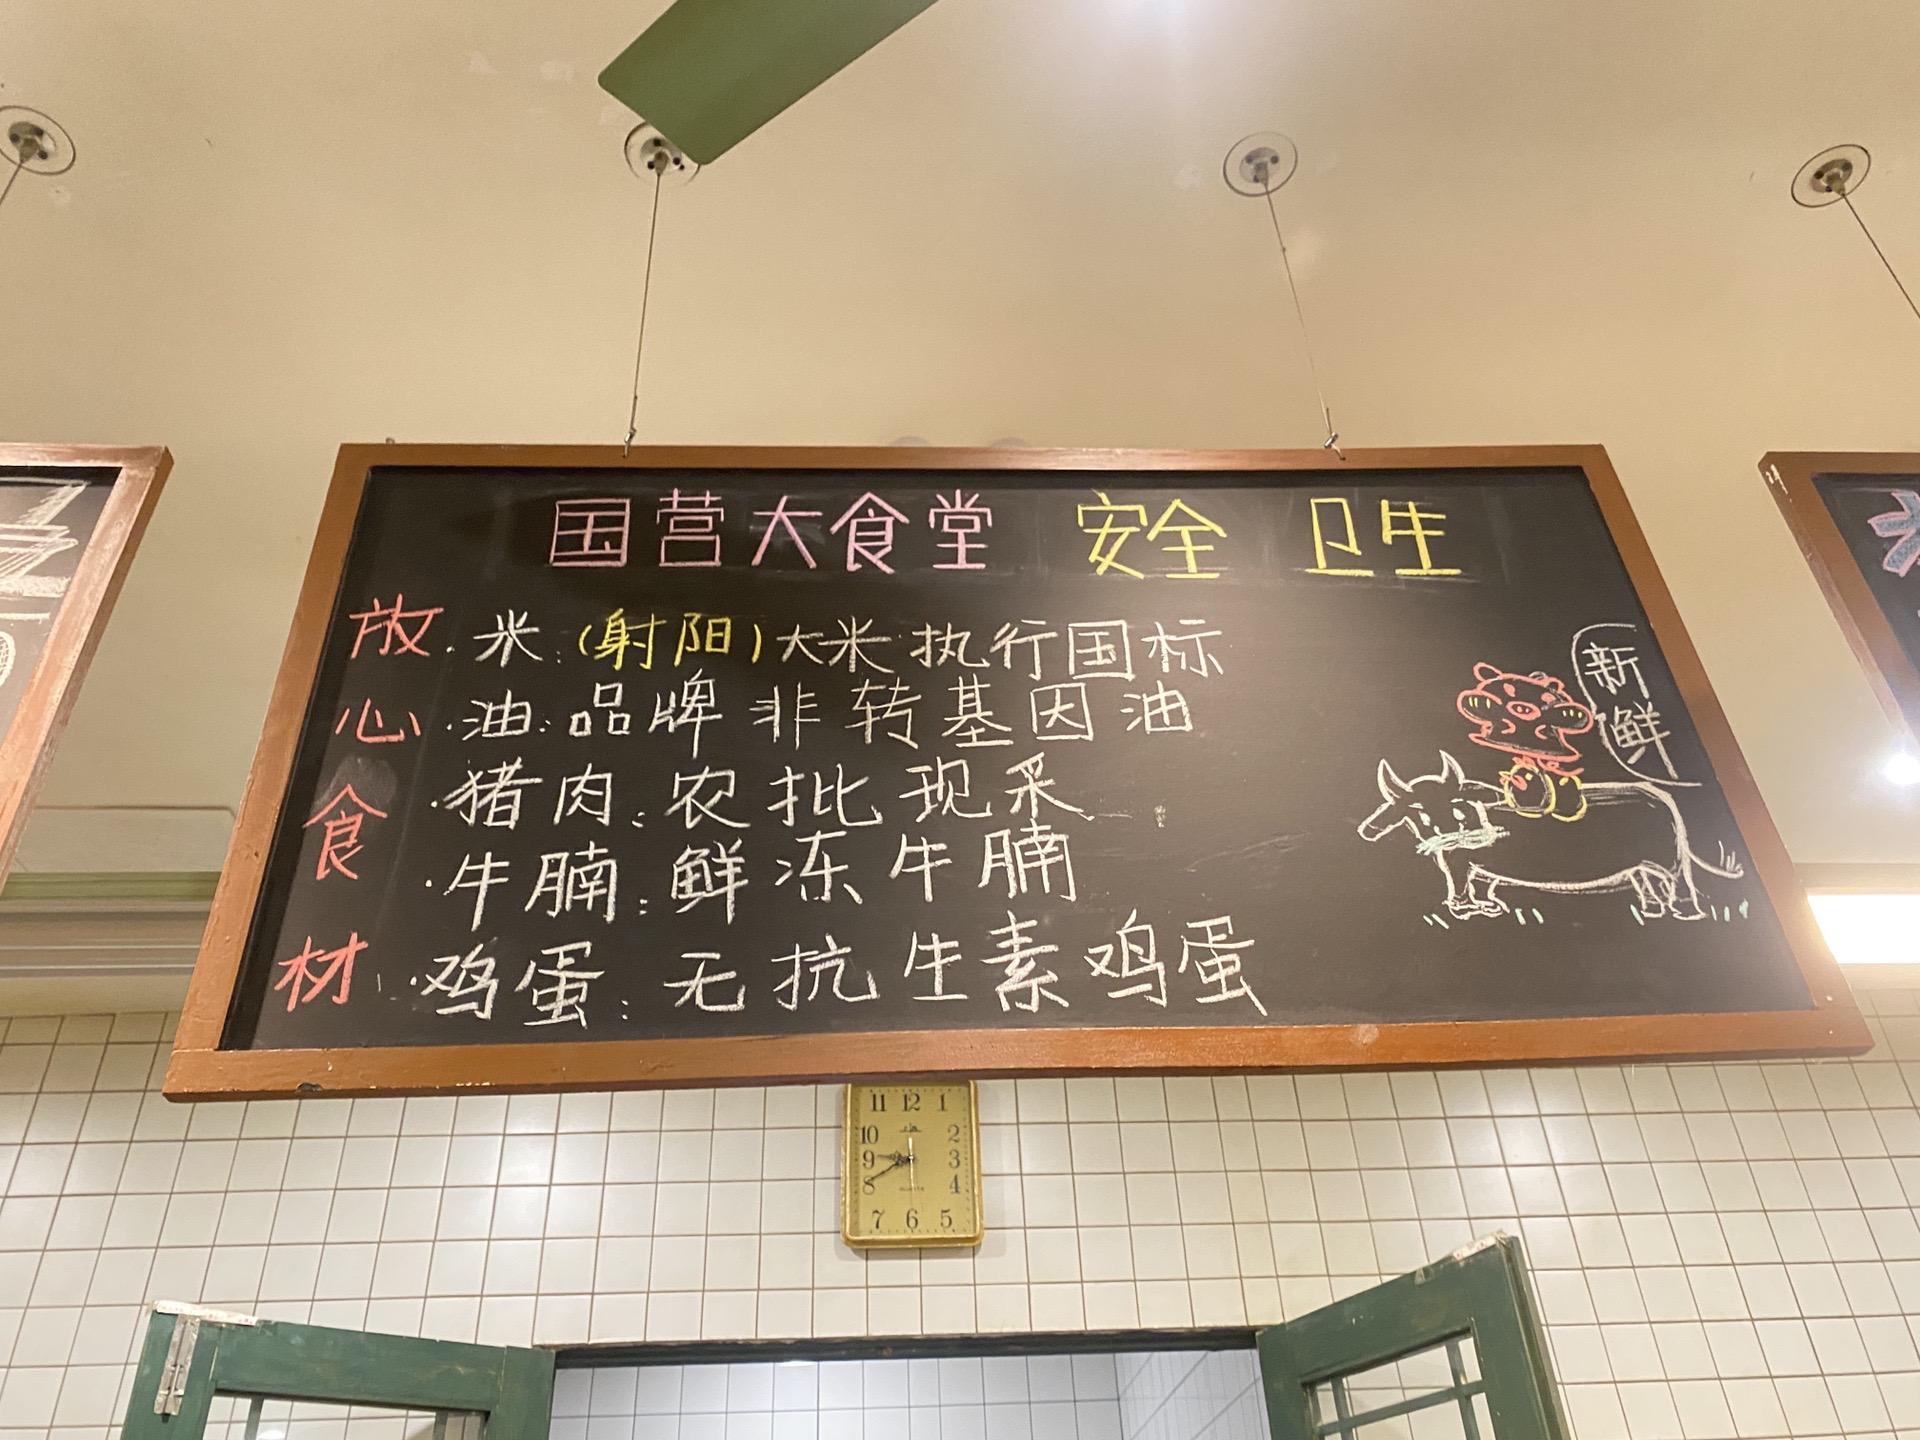 国营大食堂 安全 卫生
放心食材
·米:(射阳)大米 执行国标
·油:品牌 非转基因油
·猪肉:农批现采
·牛腩:鲜冻牛腩
·鸡蛋:无抗生素鸡蛋
新鲜
11 12 1
10 2
9 3
8 4
7 6 5